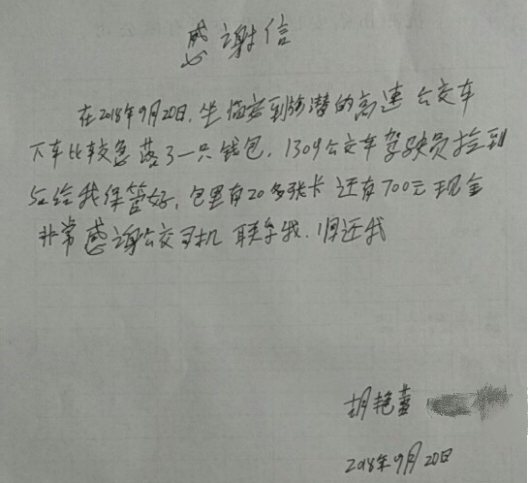 感谢信
在2018年9月20日，坐临安到於潜的高速公交车
下车比较急落了一只钱包，1309公交车驾驶员捡到
后给我保管好，包里有20多张卡还有700元现金
非常感谢公交司机联系我．归还我
胡艳
2018年9月20日